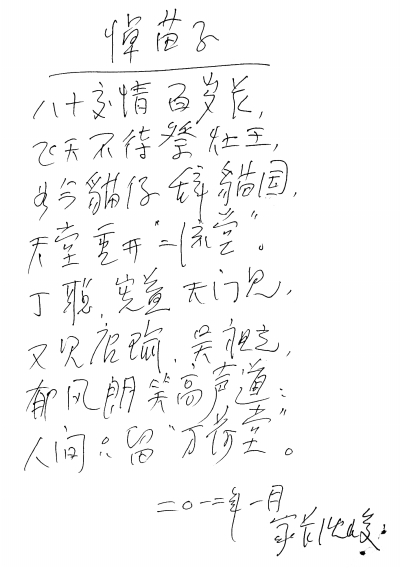 悼苗子
八十交情百岁长，
飞天不待祭灶王，
如今貓仔辞貓国，
天堂重开“二流堂”。
丁聪，宪益天门见，
又见唐瑜，吴祖光，
郁风朗笑高声道：
人间只留“万荷堂”。
二〇一二年一月
家长沈峻